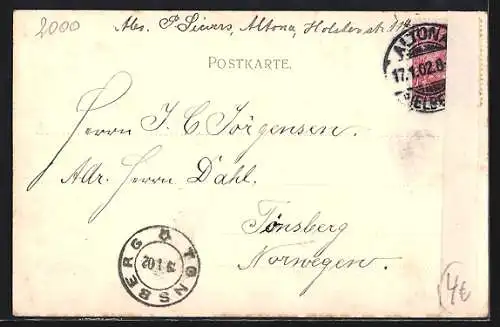 2000
Abs. P. Sievers, Altona, Holstenstr.
ALTONA
17.1.02.8
(ELBE)
POSTKARTE.
Herrn J. C. Jörgensen.
Adr. Herrn Dahl.
Tönsberg
Norwegen.
TØNSBERG
20 1 02
4€